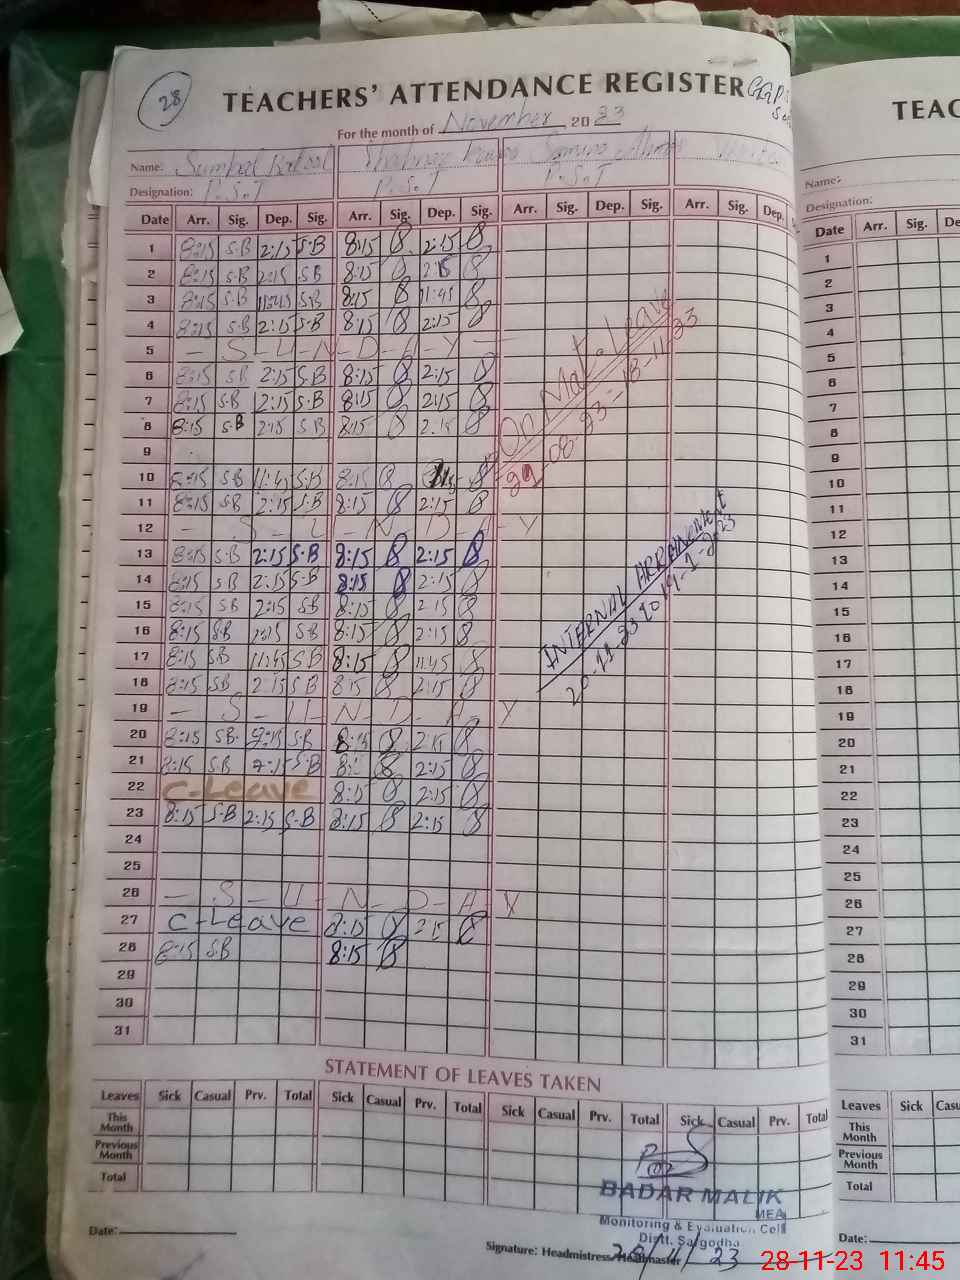 28
TEACHERS' ATTENDANCE REGISTER
For the month of November, 2023
Name: Sumbal Batool Samina
Designation: P.S.T P.S.T P.S.T
Date Arr. Sig. Dep. Sig. Arr. Sig. Dep. Sig. Arr. Sig. Dep. Sig. Arr. Sig. Dep.
1 8:15 S.B 2:15 S.B 8:15 2:15
2 8:15 S.B 2:15 S.B 8:15 2:15
3 8:15 S.B 11:45 S.B 8:15 11:45
4 8:15 S.B 2:15 S.B 8:15 2:15
5 - S - U - N - D - A - Y -
6 8:15 S.B 2:15 S.B 8:15 2:15
7 8:15 S.B 2:15 S.B 8:15 2:15
8 8:15 S.B 2:15 S.B 8:15 2:15
9
10 8:15 S.B 11:45 S.B 8:15
11 8:15 S.B 2:15 S.B 8:15 2:15
12 - S - U - N - D - A - Y
13 8:15 S.B 2:15 S.B 8:15 2:15
14 8:15 S.B 2:15 S.B 8:15 2:15
15 8:15 S.B 2:15 S.B 8:15 2:15
16 8:15 S.B 2:15 S.B 8:15 2:15
17 8:15 S.B 11:45 S.B 8:15 11:45
18 8:15 S.B 2:15 S.B 8:15 2:15
19 - S - U - N - D - A - Y
20 8:15 S.B 2:15 S.B 8:15 2:15
21 8:15 S.B 2:15 S.B 8:15 2:15
22 C-Leave 8:15 2:15
23 8:15 S.B 2:15 S.B 8:15 2:15
24
25
26 - S - U - N - D - A - Y
27 C-Leave 8:15 2:15
28 8:15 S.B 8:15
29
30
31
On Mat. Leave
18-11-23
INTERNAL ARRANGEMENT
STATEMENT OF LEAVES TAKEN
Leaves Sick Casual Prv. Total Sick Casual Prv. Total Sick Casual Prv. Total Sick Casual Prv. Total
This Month
Previous Month
Total
BADAR MALIK
MEA
Monitoring & Evaluation Cell
Distt. Sargodha
Date:
Signature: Headmistress/Headmaster
28/11/23
TEAC
Name:
Designation:
Date Arr. Sig. De
1
2
3
4
5
6
7
8
9
10
11
12
13
14
15
16
17
18
19
20
21
22
23
24
25
26
27
28
29
30
31
Leaves Sick Casu
This Month
Previous Month
Total
Date:
28-11-23 11:45